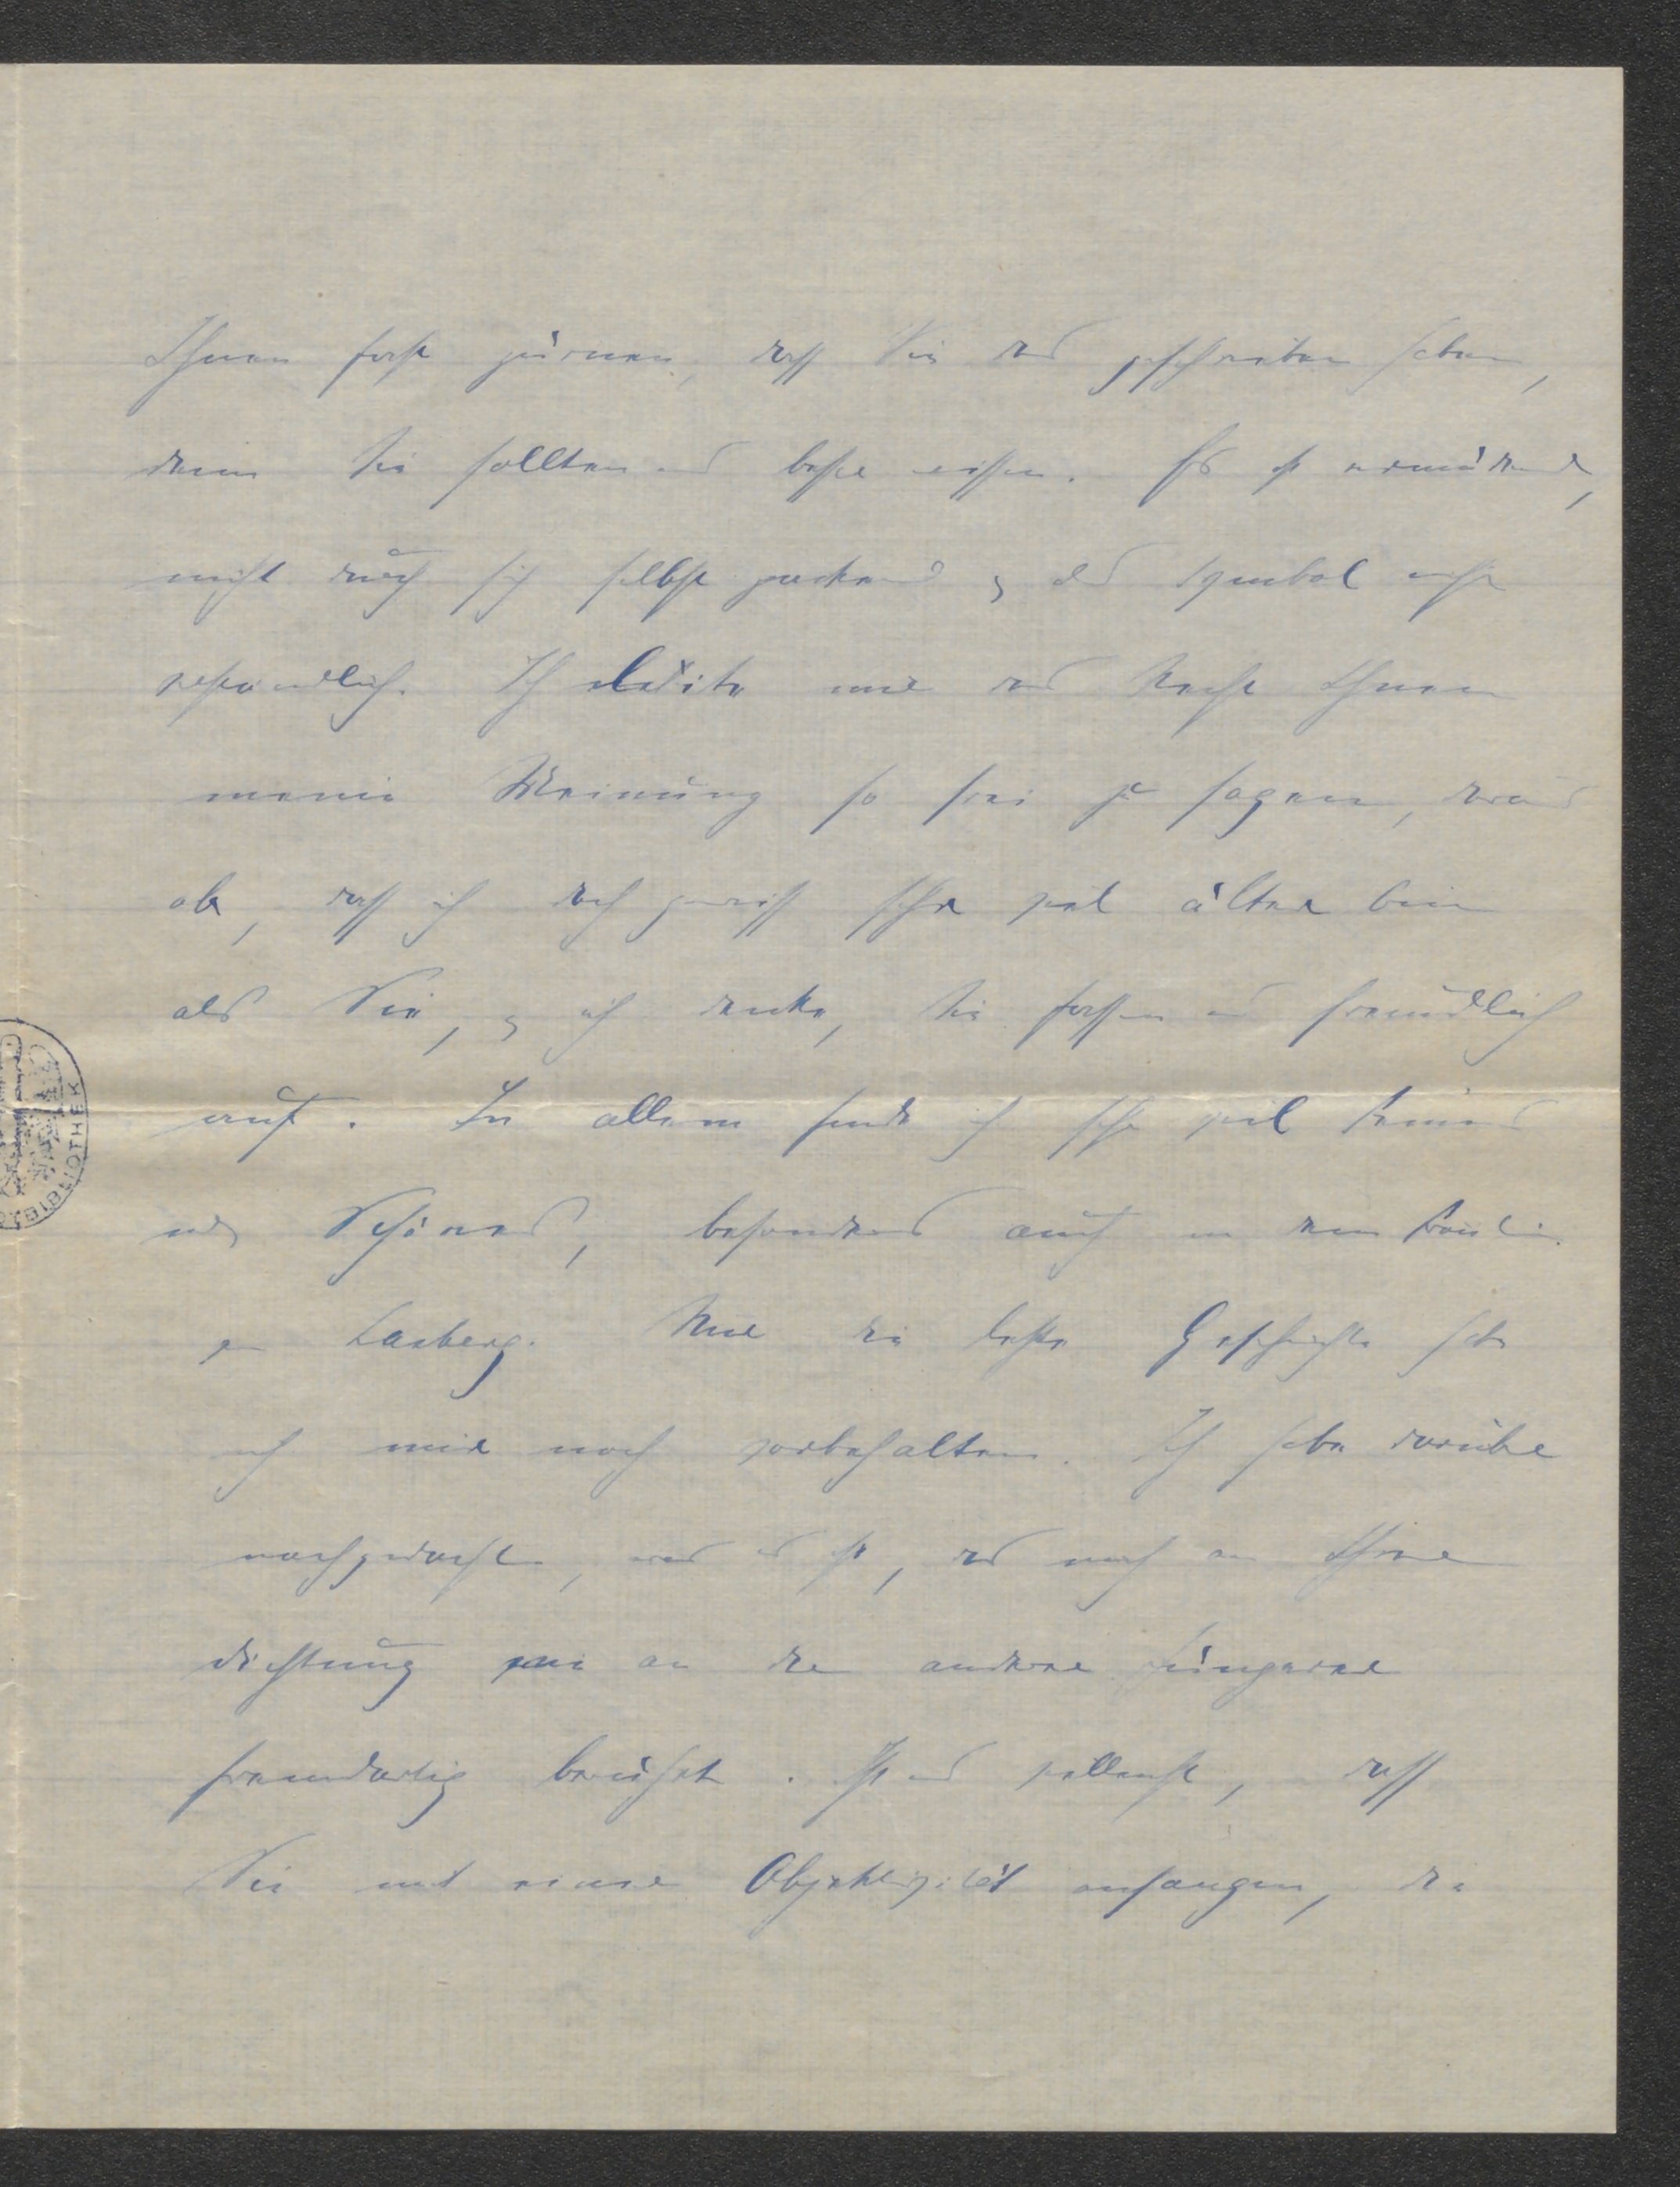 Ihnen fast zürnen, dass Sie das geschrieben haben,
denn Sie sollten es besser wissen. Es ist ermüdend,
nicht durch sich selbst packend & als Symbol nicht
verständlich. Ich leite mir das Recht Ihnen
meine Meinung so frei zu sagen, daraus
ab, dass ich doch gewiss sehr viel älter bin
als Sie, & ich denke, Sie fassen es freundlich
auf. In allem finde ich sehr viel Feines
und Schönes, besonders auch in dem
Lasberg. Nur die letzte Geschichte habe
ich mir noch vorbehalten. Ich habe darüber
nachgedacht, was es ist, das mich an Ihrer
Dichtung wie an der anderer Jüngerer
fremdartig berührt. Ist es vielleicht, dass
Sie mit einer Objektivität anfangen, die
BIBLIOTHEK